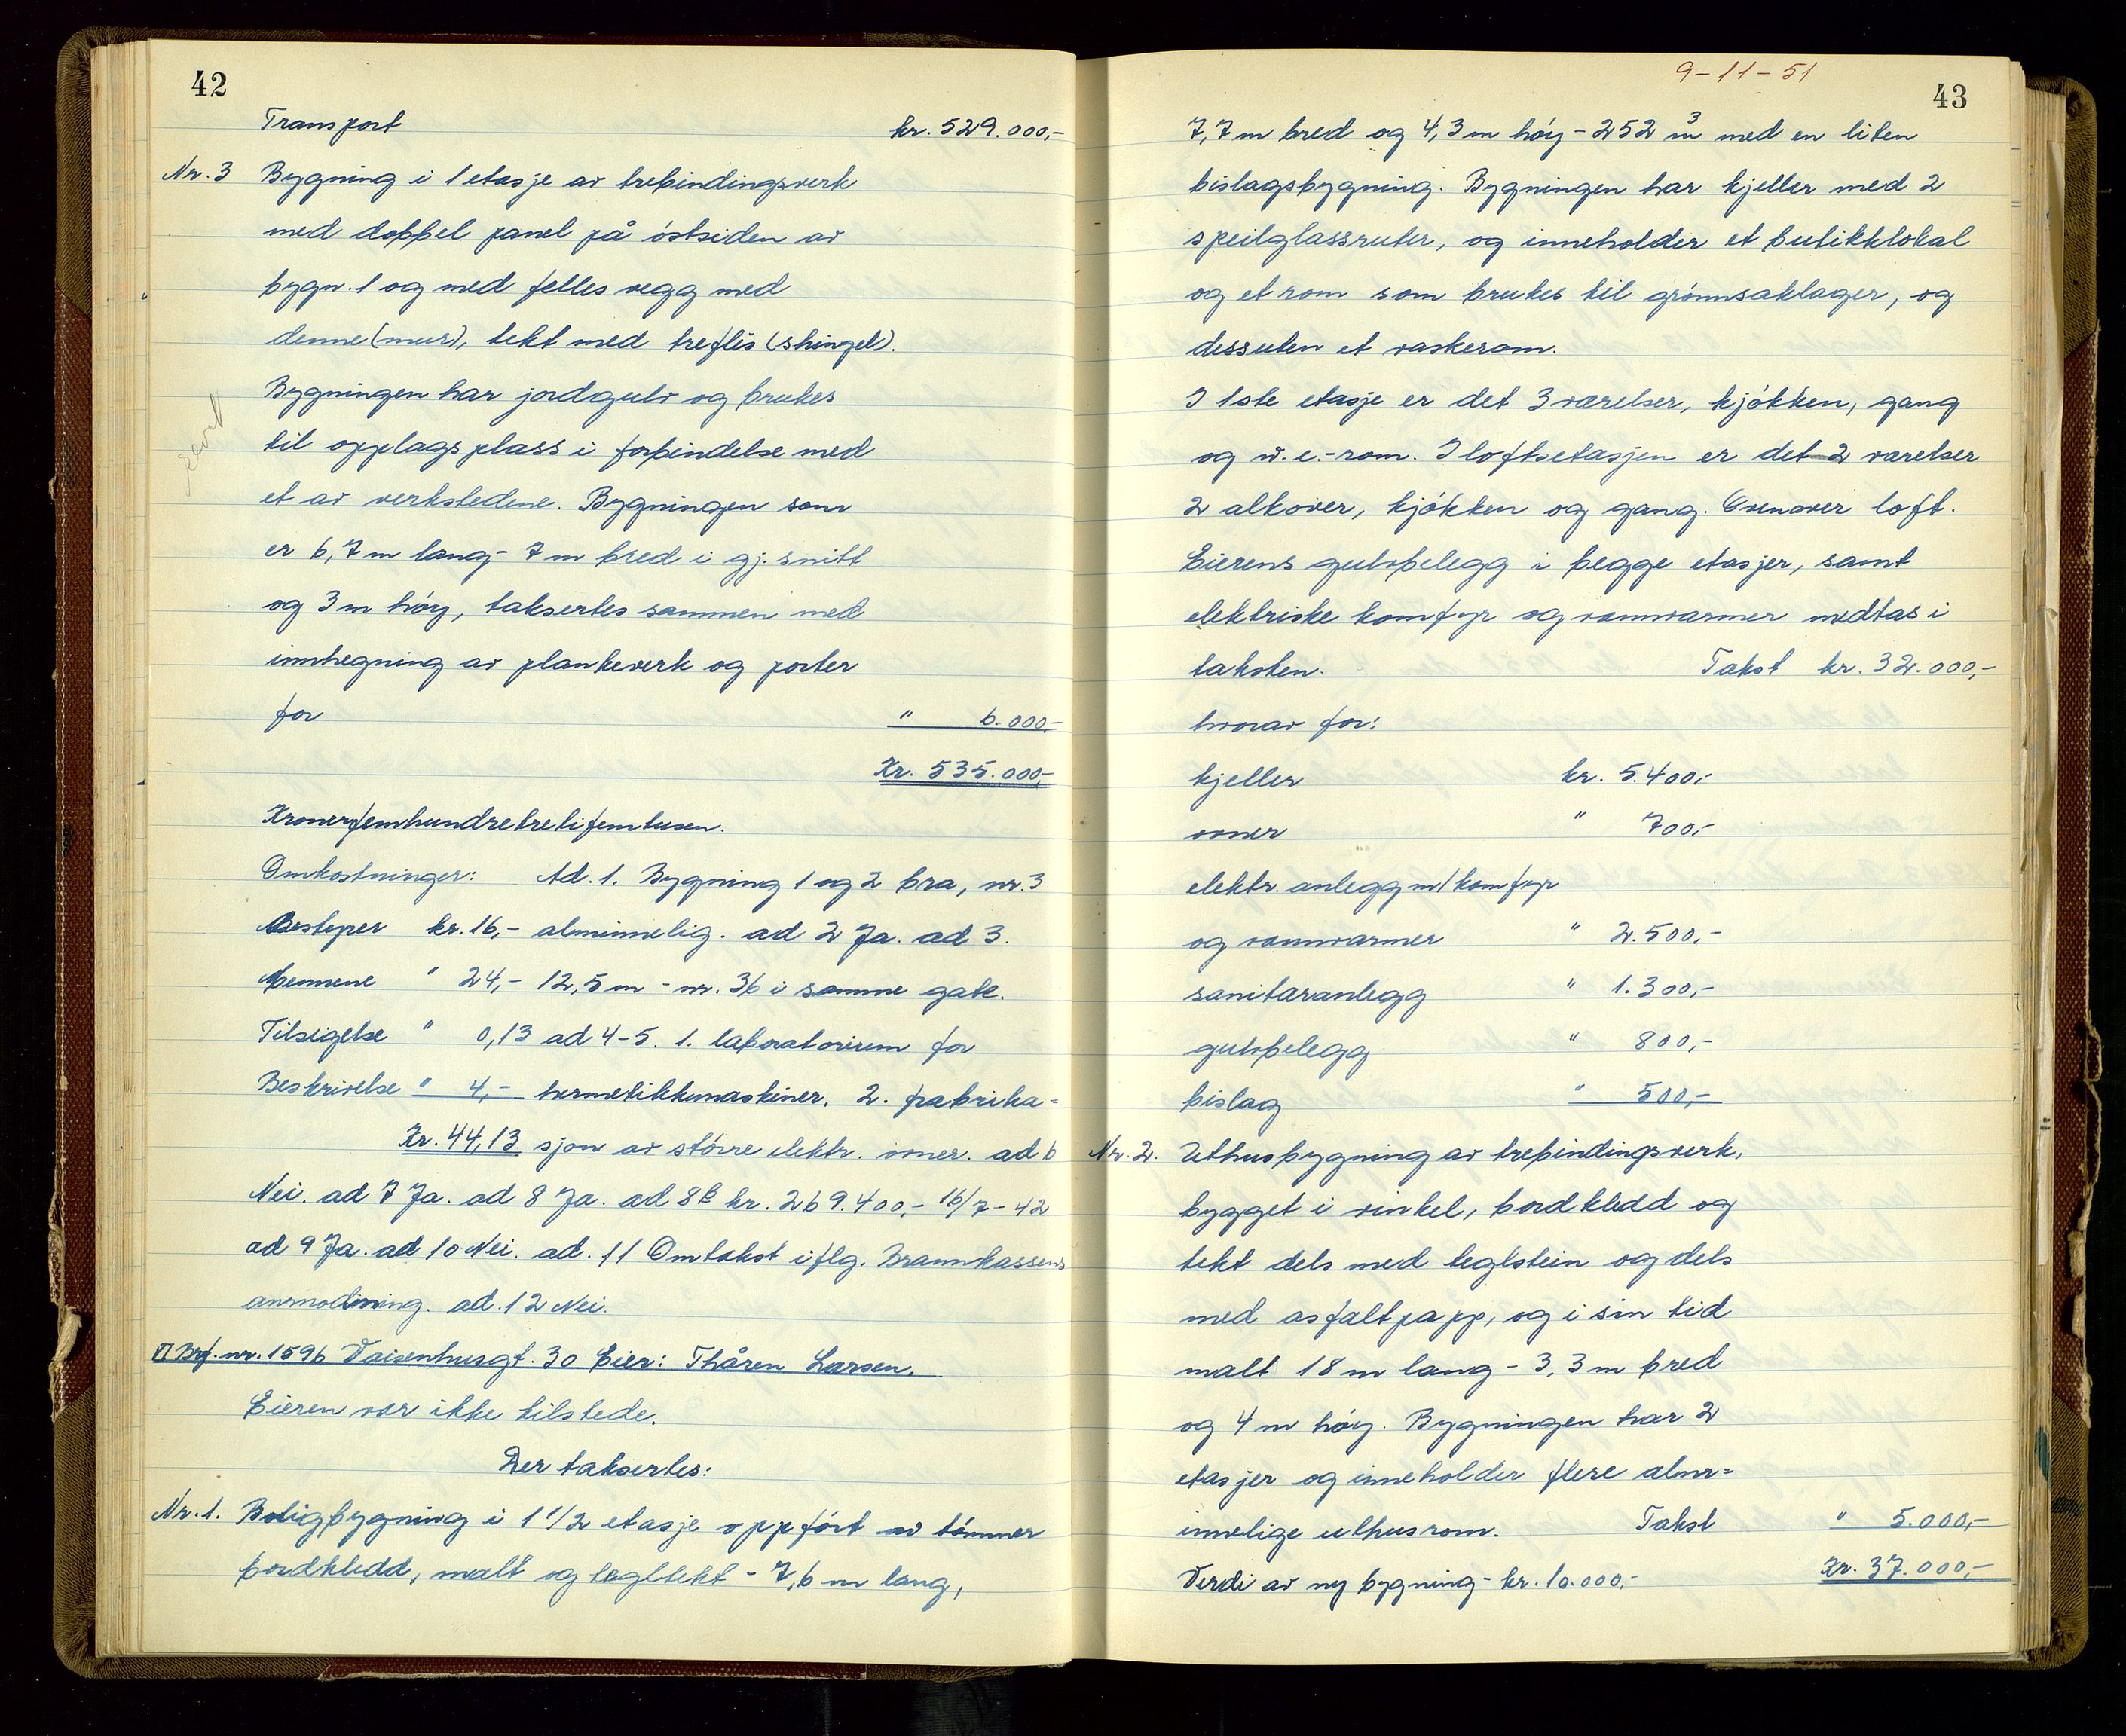 42
Transport kr. 529.000,-
Nr. 3 Bygning i 1 etasje av trebindingsverk
med dobbel panel på østsiden av
bygn. 1 og med felles vegg med
denne (mur), tekt med treflis (shingel).
Bygningen har jordgulv og brukes
til opplagsplass i forbindelse med
et av verkstedene. Bygningen som
er 6,7 m lang - 7 m bred i gj. snitt
og 3 m høy, taksertes sammen med
innhegning av plankeverk og porter
for " 6.000,-
Kr. 535.000,-
Kronerfemhundretretifemtusen.
Omkostninger: Ad. 1. Bygning 1 og 2 bra, nr. 3
Bestyrer kr. 16,- alminnelig. ad 2 Ja. ad 3.
Mennene " 24,- 12,5 m - nr. 36 i samme gate.
Tilsigelse " 0,13 ad 4-5. 1. laboratorium for
Beskrivelse " 4,- hermetikkmaskiner. 2. frabrika=
Kr. 44,13 sjon av større elektr. ovner. ad 6
Nei. ad 7 Ja. ad 8 Ja. ad 8b kr. 269.400,- 16/7-42
ad 9 Ja. ad 10 Nei. ad. 11 Omtakst iflg. Brannkassens
anmodning. ad. 12 Nei.
Brf. nr. 1596 Vaisenhusgt. 30 Eier: Thåren Larsen.
Eieren var ikke tilstede.
Der taksertes:
Nr. 1. Boligbygning i 1 1/2 etasje oppført av tømmer
bordkledd, malt og tegltekt - 7,6 m lang,
9-11-51
43
7,7 m bred og 4,3 m høy - 252 m3 med en liten
bislagsbygning. Bygningen har kjeller med 2
speilglassruter, og inneholder et butikklokal
og et rom som brukes til grønnsaklager, og
dessuten et vaskerom.
I 1ste etasje er det 3 værelser, kjøkken, gang
og w.c.-rom. I loftsetasjen er det 2 værelser
2 alkover, kjøkken og gang. Ovenover loft.
Eierens gulvbelegg i begge etasjer, samt
elektriske komfyr og vannvarmer medtas i
taksten. Takst kr. 32.000,-
hvorav for:
kjeller kr. 5.400,-
ovner " 700,-
elektr. anlegg m/komfyr
og vannvarmer " 2.500,-
sanitæranlegg " 1.300,-
gulvbelegg " 800,-
bislag " 500,-
Nr. 2. Uthusbygning av trebindingsverk,
bygget i vinkel, bordkledd og
tekt dels med teglstein og dels
med asfaltpapp, og i sin tid
malt 18 m lang - 3,3 m bred
og 4 m høy. Bygningen har 2
etasjer og inneholder flere alm=
innelige uthusrom. Takst " 5.000,-
Verdi av ny bygning - kr. 10.000,- Kr. 37.000,-